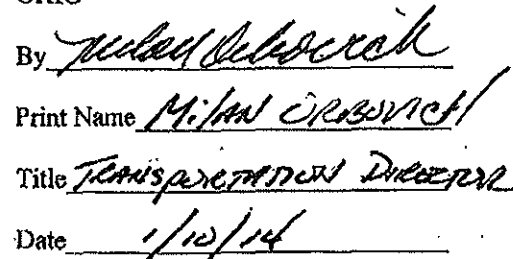 By Milan Orbovich
Print Name Milan ORBOVICH
Title TRANSPORTATION DIRECTOR
Date 1/10/14